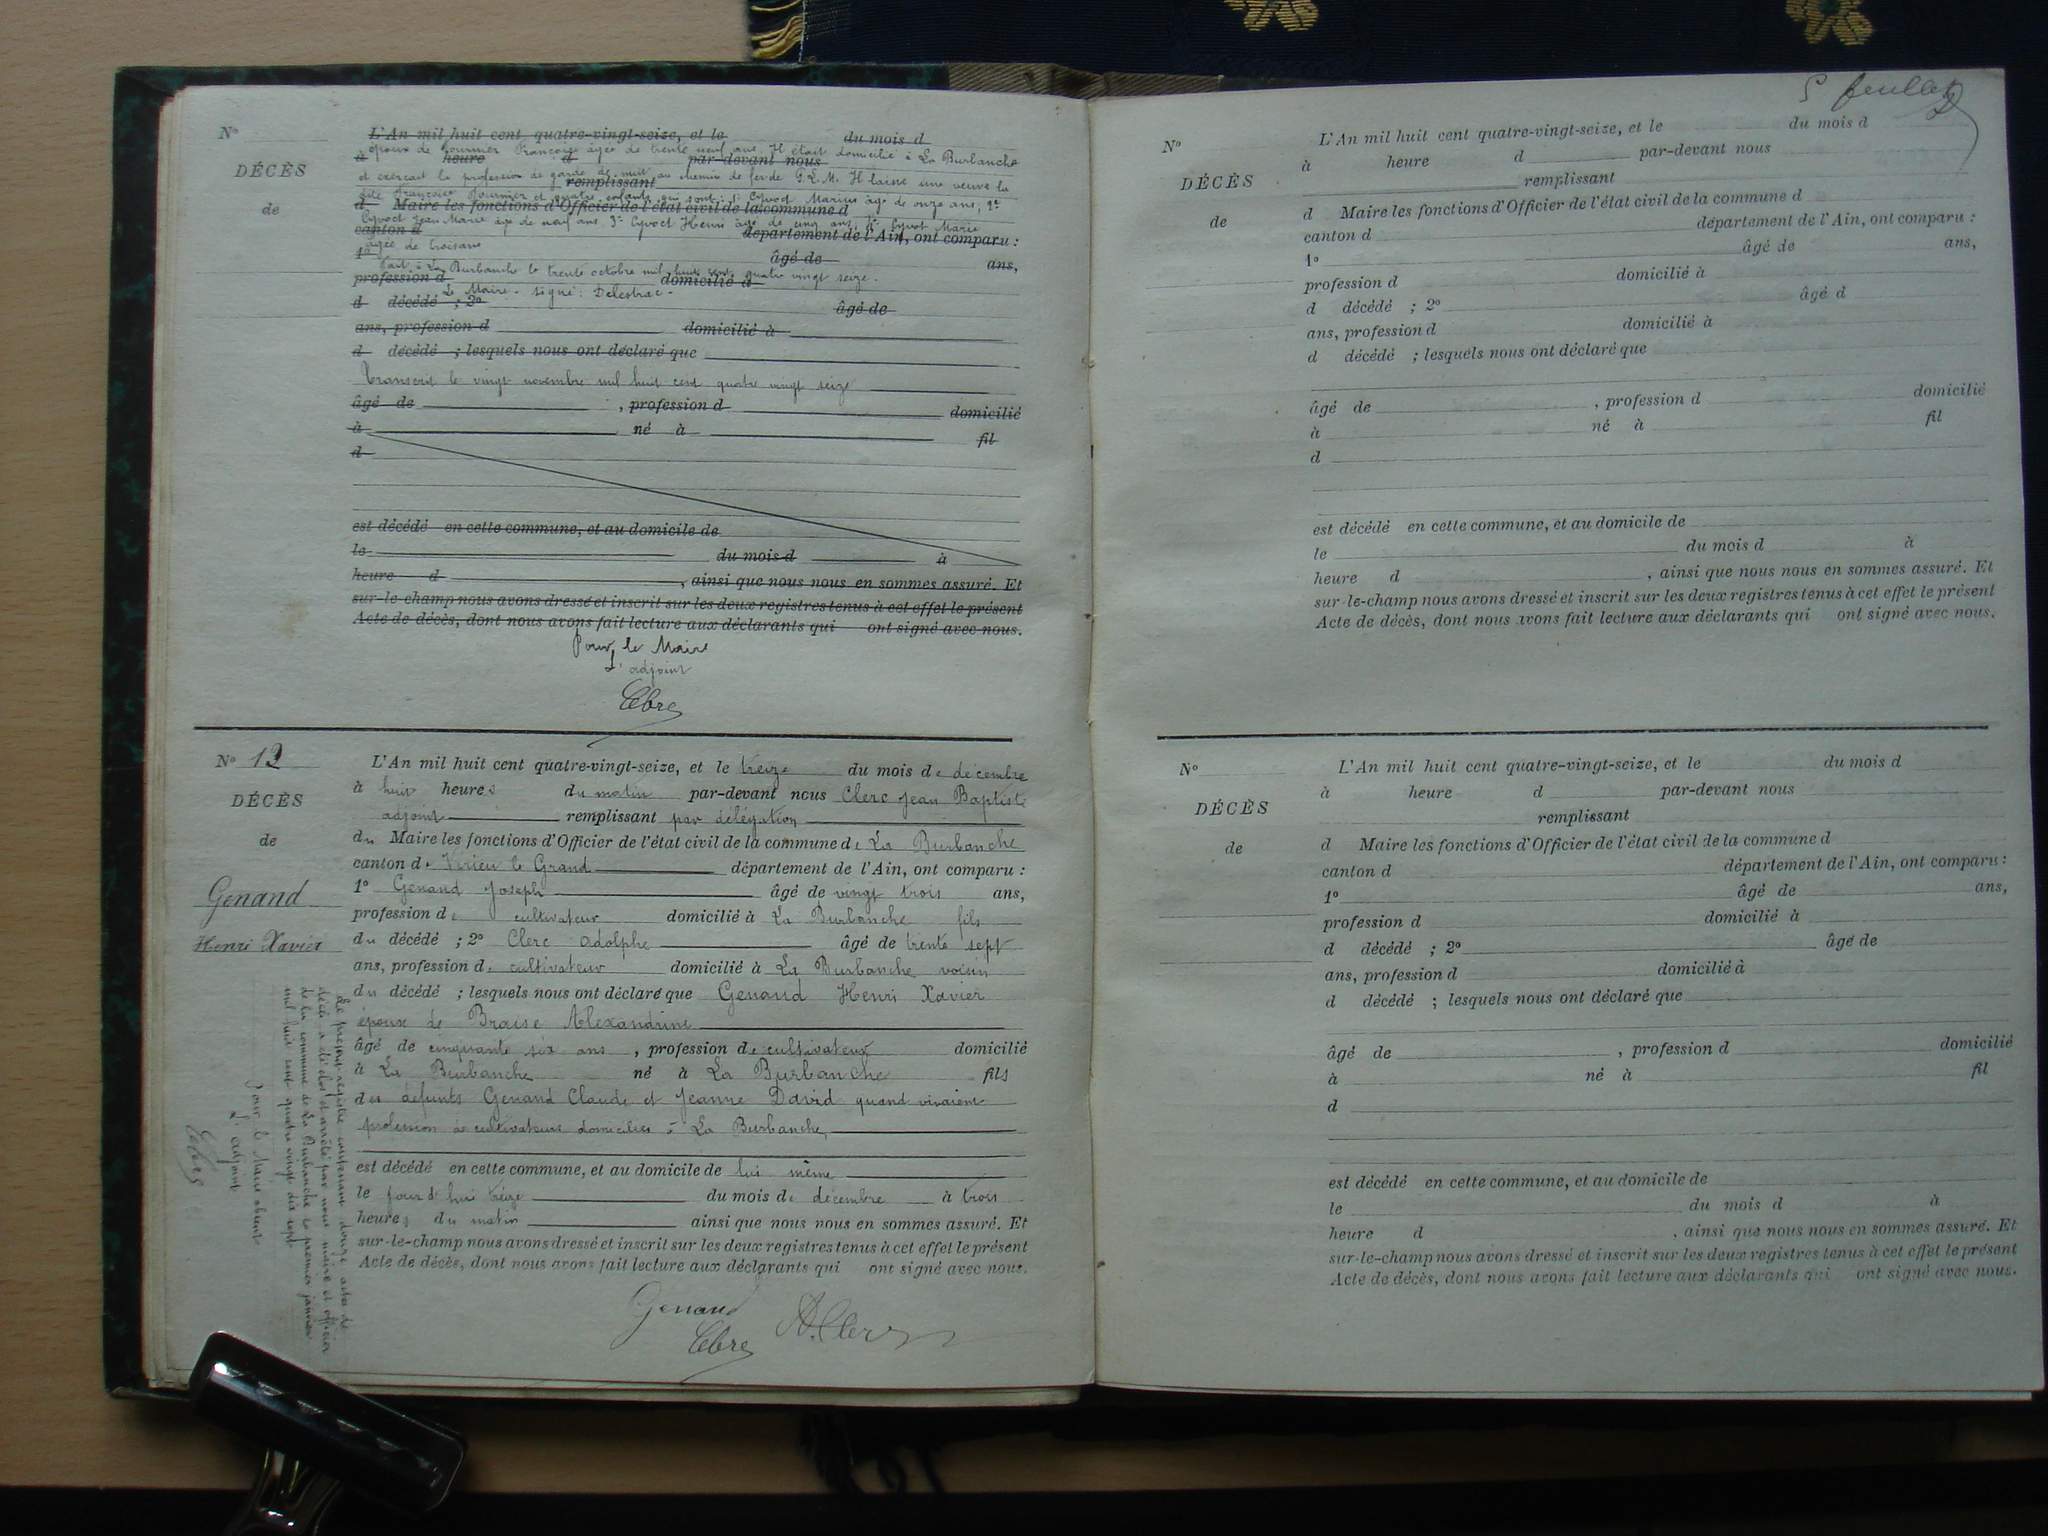 N°
L'An mil huit cent quatre-vingt-seize, et le du mois d
époux de Fournier Françoise âgée de trente neuf ans. Il était domicilié à La Burbanche
à heure d par-devant nous
DÉCÈS
et exerçait la profession de garde de nuit au chemin de fer de P.L.M. Il laisse une veuve la
remplissant
dite Françoise Fournier et quatre enfants qui sont: 1° Cyvoct Marius âgé de onze ans, 2°
de
d Maire les fonctions d'Officier de l'état civil de la commune d
Cyvoct Jean Marie âgé de neuf ans. 3° Cyvoct Henri âgé de cinq ans, 4° Cyvoct Marie
canton d département de l'Ain, ont comparu :
âgée de trois ans
1° âgé de ans,
Fait à La Burbanche le trente octobre mil huit cent quatre vingt seize.
profession d domicilié à
Le Maire - signé: Delestrac -
d décédé ; 2° âgé de
ans, profession d domicilié à
d décédé ; lesquels nous ont déclaré que
Transcrit le vingt novembre mil huit cent quatre vingt seize
âgé de , profession d domicilié
à né à fil
d
est décédé en cette commune, et au domicile de
le du mois d à
heure d , ainsi que nous nous en sommes assuré. Et
sur-le-champ nous avons dressé et inscrit sur les deux registres tenus à cet effet le présent
Acte de décès, dont nous avons fait lecture aux déclarants qui ont signé avec nous.
Pour le Maire
L'adjoint
Clerc
N° 12
L'An mil huit cent quatre-vingt-seize, et le treize du mois de décembre
à huit heures du matin par-devant nous Clerc Jean Baptiste
DÉCÈS
adjoint remplissant par délégation
de
du Maire les fonctions d'Officier de l'état civil de la commune de La Burbanche
canton de Virieu le Grand département de l'Ain, ont comparu :
Genand
1° Genand Joseph âgé de vingt trois ans,
profession de cultivateur domicilié à La Burbanche fils
Henri Xavier
du décédé ; 2° Clerc Adolphe âgé de trente sept
ans, profession de cultivateur domicilié à La Burbanche voisin
du décédé ; lesquels nous ont déclaré que Genand Henri Xavier
époux de Braise Alexandrine
âgé de cinquante six ans , profession de cultivateur domicilié
à La Burbanche né à La Burbanche fils
des défunts Genand Claude et Jeanne David quand vivaient
profession de cultivateurs domiciliés à La Burbanche,
est décédé en cette commune, et au domicile de lui même
le jour d'hui treize du mois de décembre à trois
heures du matin ainsi que nous nous en sommes assuré. Et
sur-le-champ nous avons dressé et inscrit sur les deux registres tenus à cet effet le présent
Acte de décès, dont nous avons fait lecture aux déclarants qui ont signé avec nous.
Genand A. Clerc
Clerc
Le présent registre contenant douze actes de
décès a été clos et arrêté par nous maire et officier
de la commune de La Burbanche le premier janvier
mil huit cent quatre vingt dix sept
Pour le Maire absent
L'adjoint
Clerc
5 feuillet
N°
L'An mil huit cent quatre-vingt-seize, et le du mois d
à heure d par-devant nous
DÉCÈS
remplissant
de
d Maire les fonctions d'Officier de l'état civil de la commune d
canton d département de l'Ain, ont comparu :
1° âgé de ans,
profession d domicilié à
d décédé ; 2° âgé d
ans, profession d domicilié à
d décédé ; lesquels nous ont déclaré que
âgé de , profession d domicilié
à né à fil
d
est décédé en cette commune, et au domicile de
le du mois d à
heure d , ainsi que nous nous en sommes assuré. Et
sur-le-champ nous avons dressé et inscrit sur les deux registres tenus à cet effet le présent
Acte de décès, dont nous avons fait lecture aux déclarants qui ont signé avec nous.
N°
L'An mil huit cent quatre-vingt-seize, et le du mois d
à heure d par-devant nous
DÉCÈS
remplissant
de
d Maire les fonctions d'Officier de l'état civil de la commune d
canton d département de l'Ain, ont comparu :
1° âgé de ans,
profession d domicilié à
d décédé ; 2° âgé de
ans, profession d domicilié à
d décédé ; lesquels nous ont déclaré que
âgé de , profession d domicilié
à né à fil
d
est décédé en cette commune, et au domicile de
le du mois d à
heure d , ainsi que nous nous en sommes assuré. Et
sur-le-champ nous avons dressé et inscrit sur les deux registres tenus à cet effet le présent
Acte de décès, dont nous avons fait lecture aux déclarants qui ont signé avec nous.